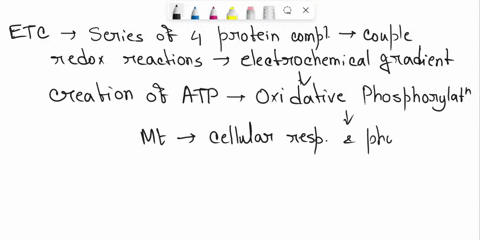 ETC → Series of 4 protein compl. → couple
redox reactions → electrochemical gradient
↓
creation of ATP → Oxidative Phosphorylatⁿ
↓
Mt → cellular resp. & pho